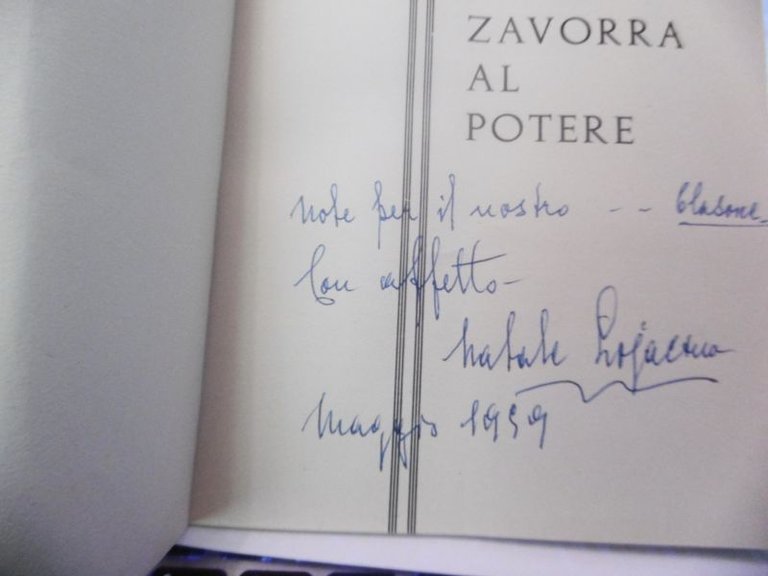 ZAVORRA
AL
POTERE
Note per il nostro -- blasone
Con affetto-
Natale Lojacono
Maggio 1959